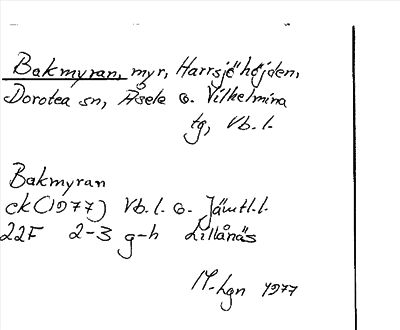 Bakmyran, myr, Harrsjöhöjden,
Dorotea sn, Åsele o. Vilhelmina
tg, Vb. l.
Bakmyran
ek (1977) Vb. l. o. Jämtl. l.
22F 2-3 g-h Lillånäs
M-Lgn 1977